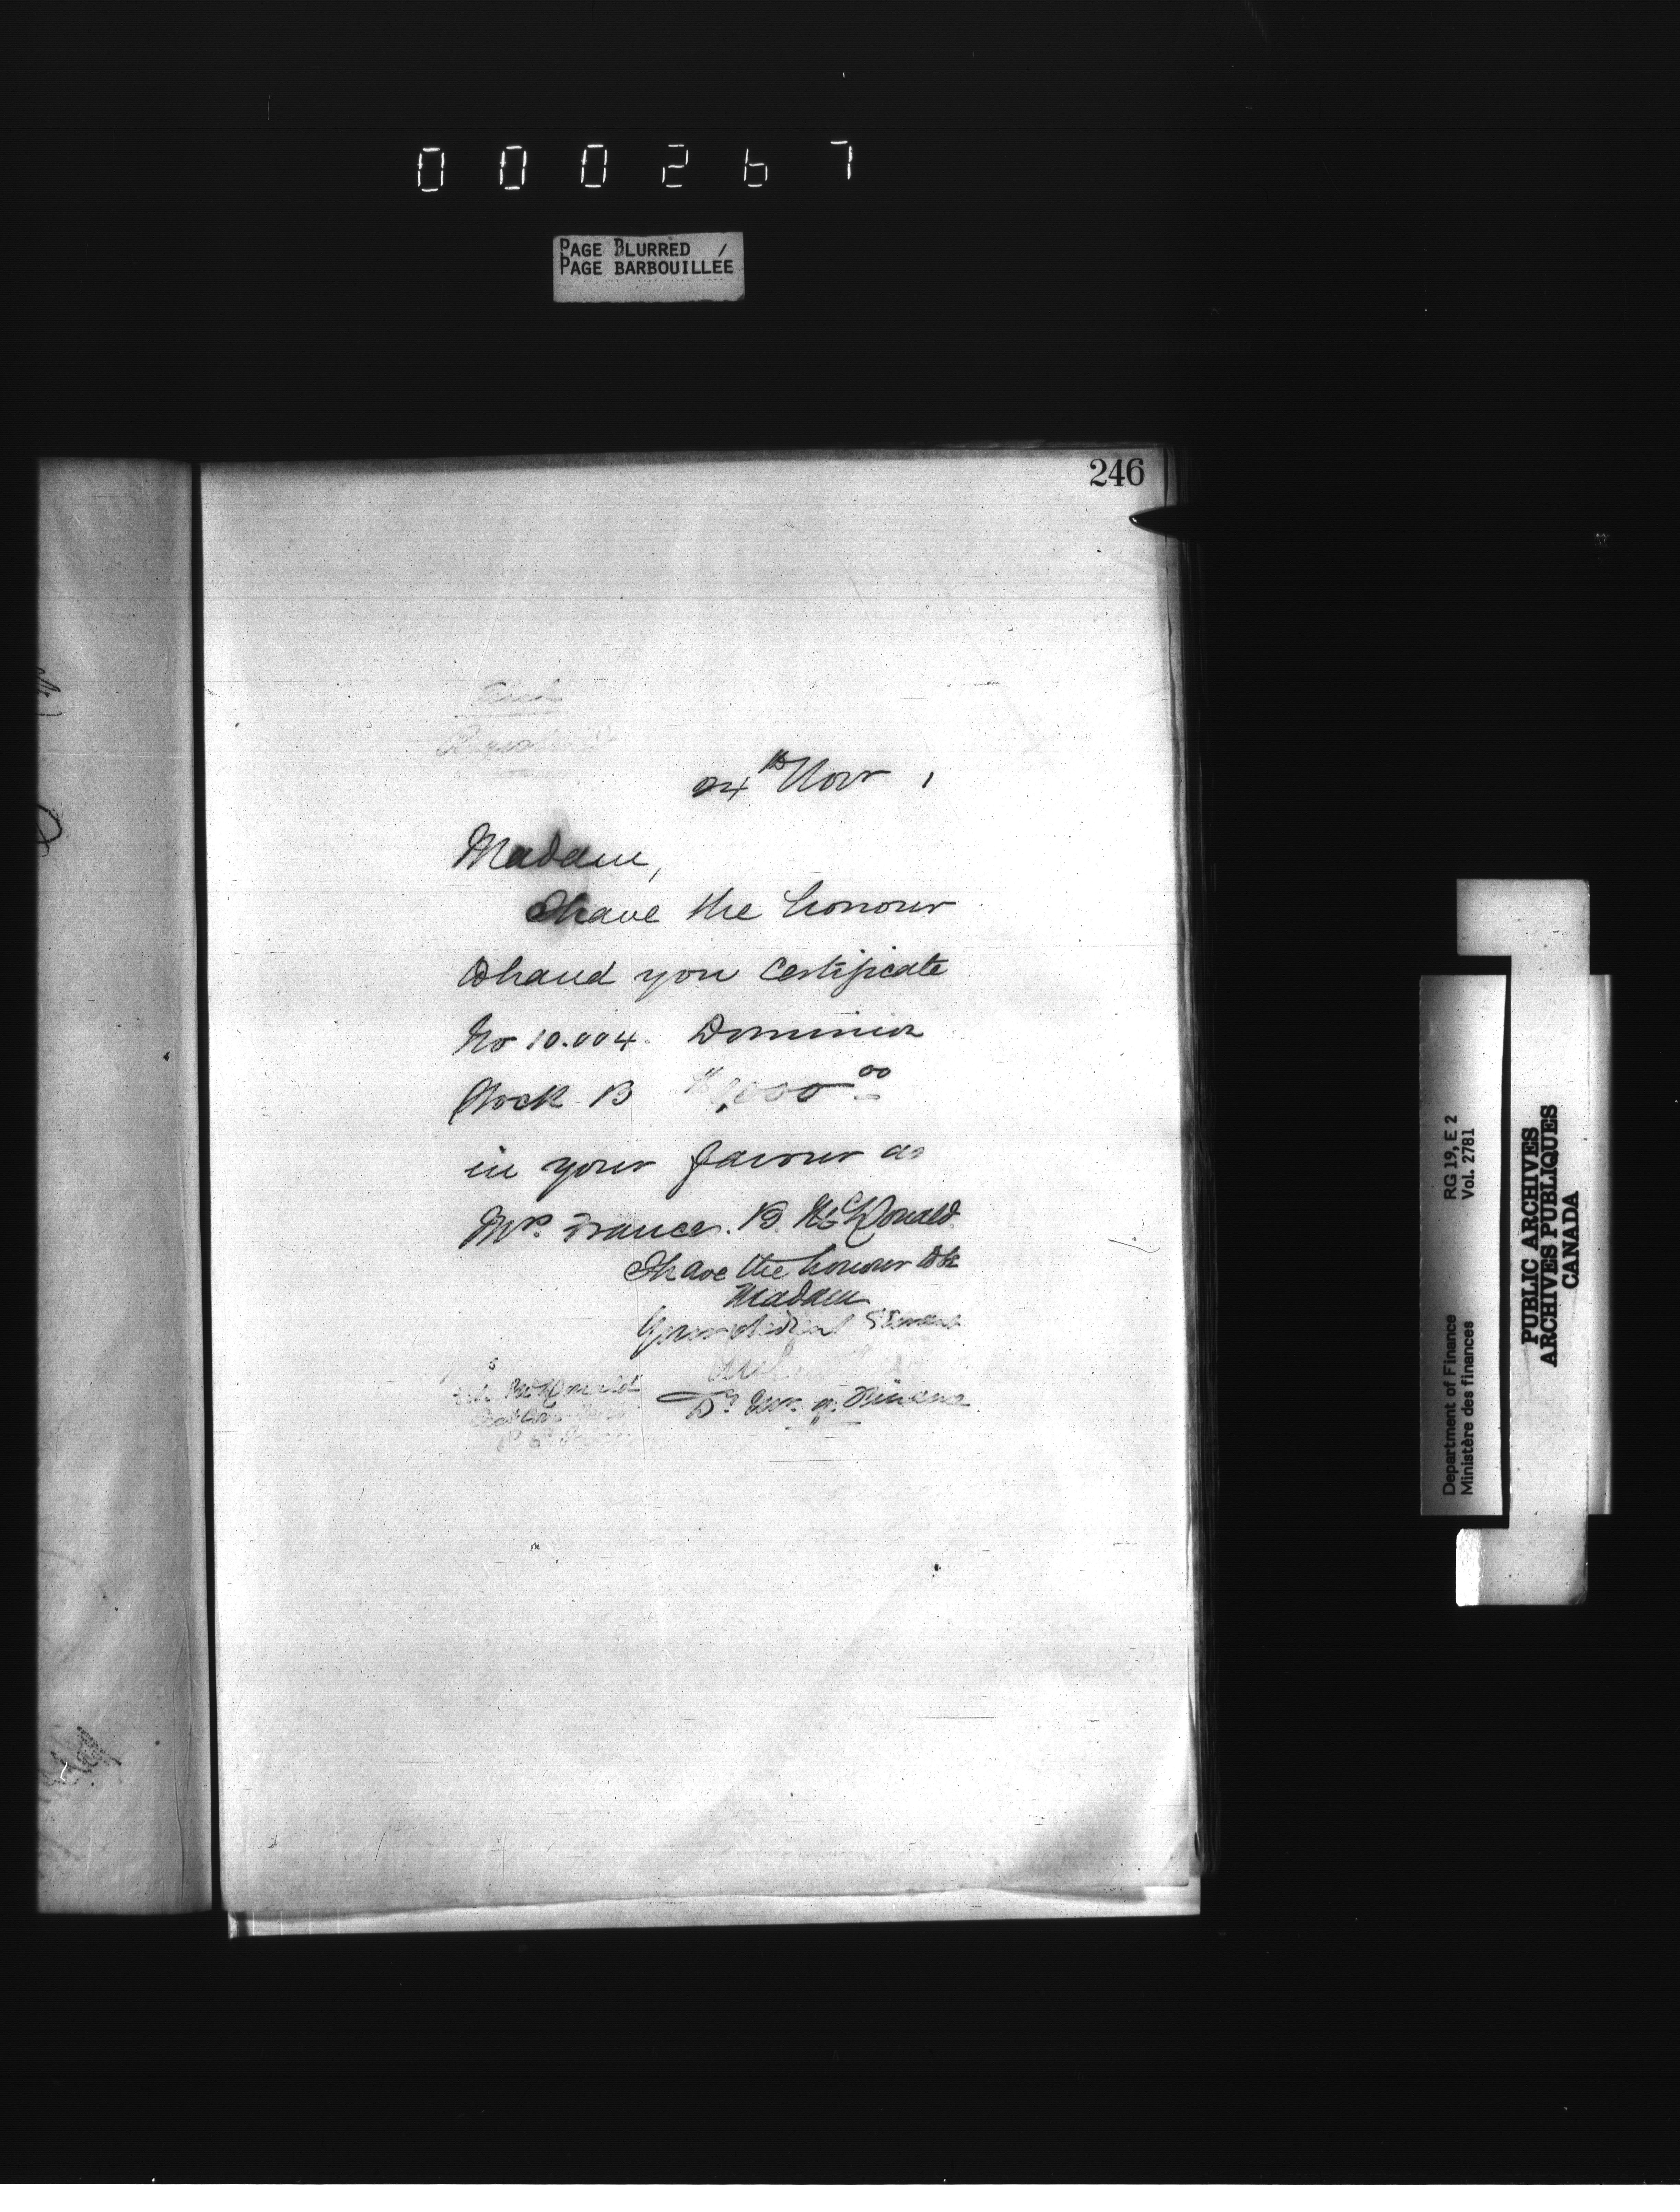 000267
PAGE BLURRED /
PAGE BARBOUILLEE
246
24th Novr 1
Madam,
I have the honour
to hand you Certificate
No 10.004. Dominion
Stock B $ ,000 00
in your favour as
Mrs. Frances. B. McDonald
I have the honour to be
Madam
Your obedient Servant
McDonald
Dy Min. of Finance
Department of Finance
Ministère des finances
RG 19, E 2
Vol. 2781
PUBLIC ARCHIVES
ARCHIVES PUBLIQUES
CANADA